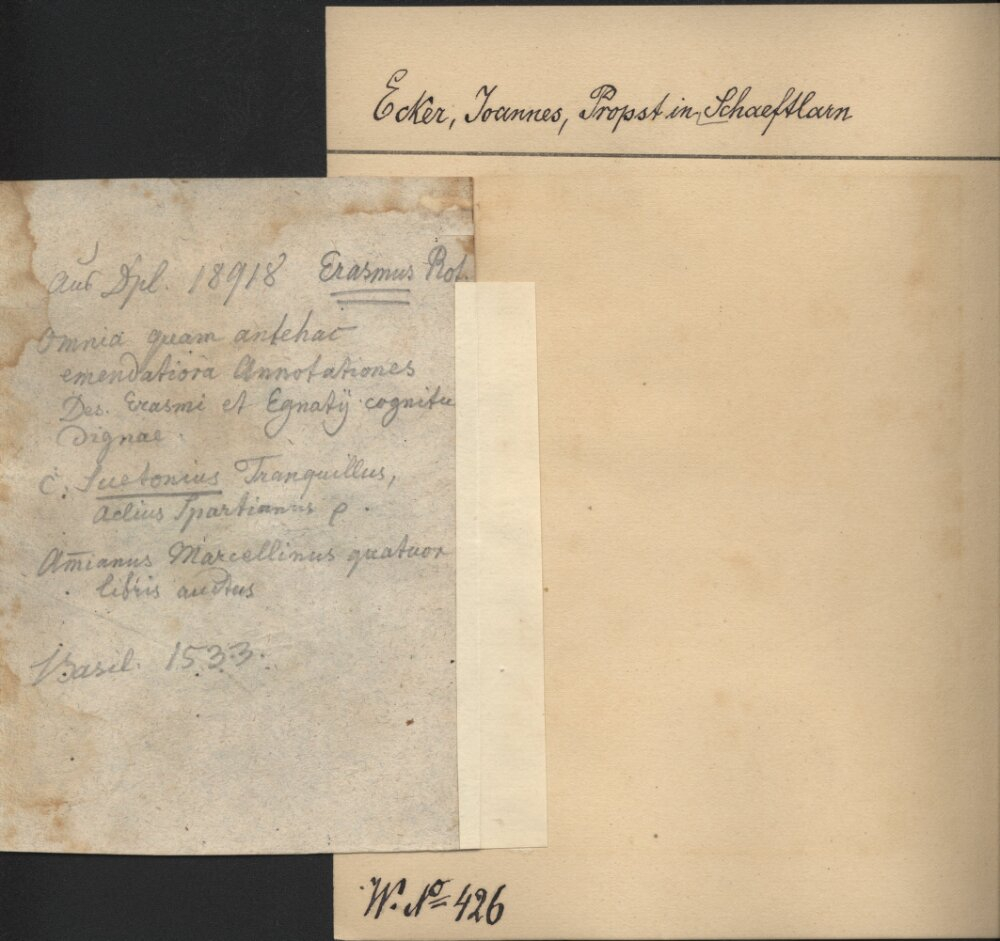 Ecker, Joannes, Propst in Schaeftlarn
Aus Dpl. 18918 Erasmus Rot.
Omnia quam antehac
emendatiora Annotationes
Des. Erasmi et Egnatij cognitu
dignae.
C. Suetonius Tranquillus,
Aelius Spartianus
Am̄ianus Marcellinus quatuor
libris auctus
Basil. 1533.
W. No 426